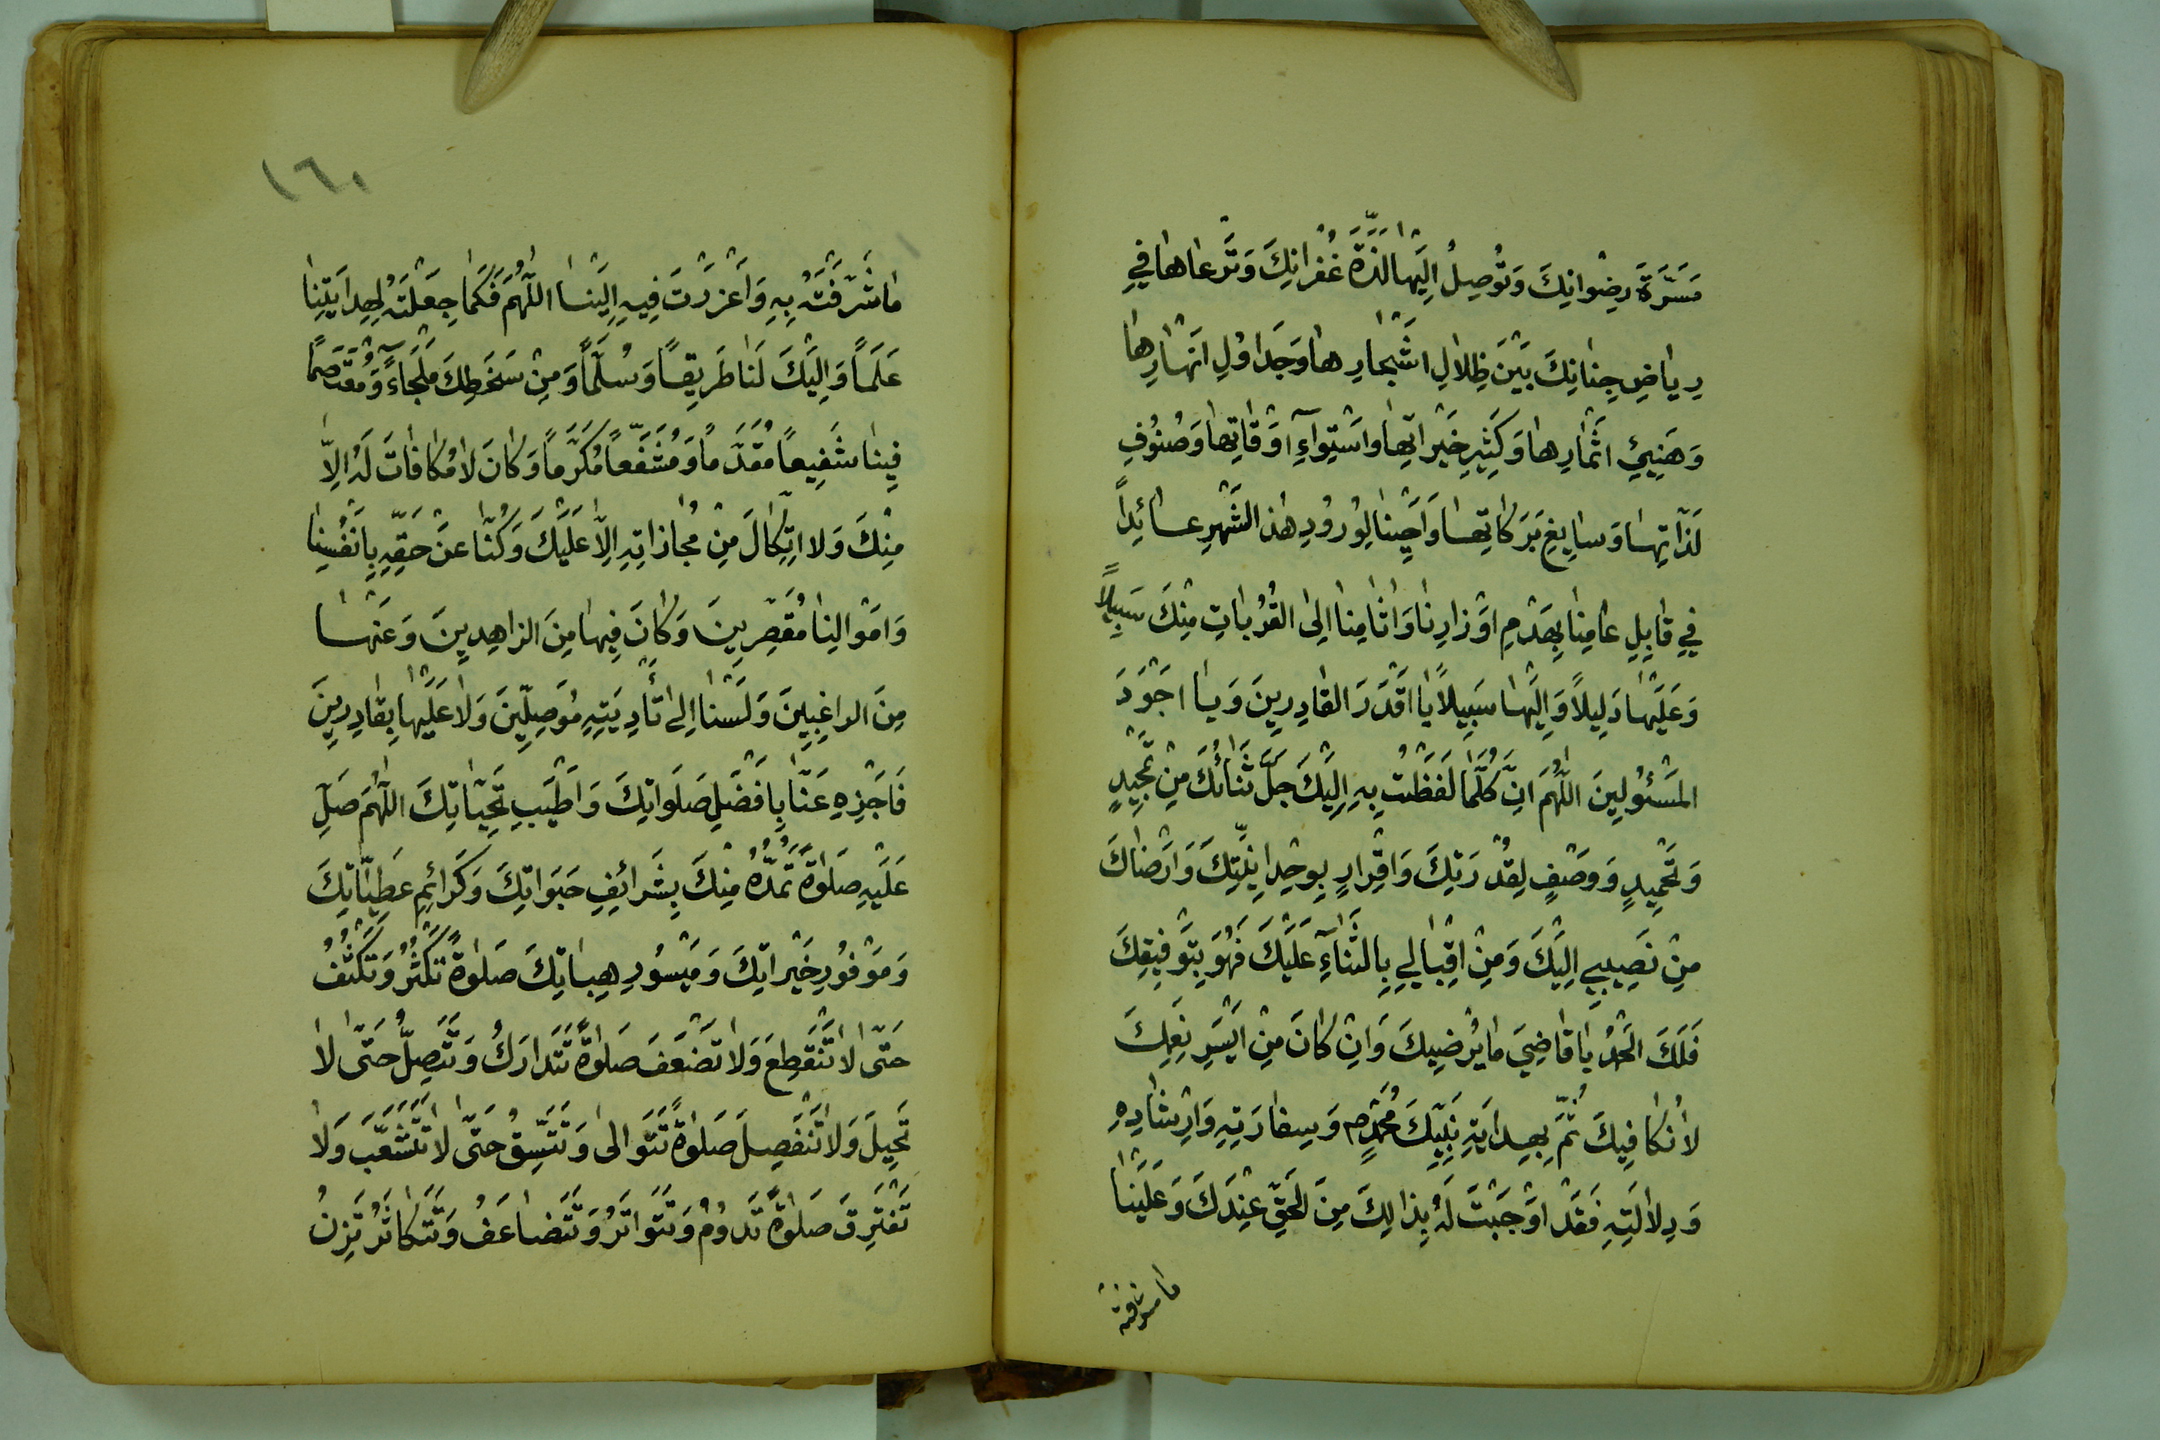 مَسَرَّةَ رِضْوانِكَ وَتُوصِلُ اِلَيْهَا لَذَّةَ غُفْرانِكَ وَتَرْعاها فِي
رِياضِ جِنانِكَ بَيْنَ ظِلالِ اَشْجارِها وَجَداوِلِ اَنْهارِها
وَهَنِيئِ اَثْمارِها وَكَثِيرِ خَيْراتِها وَاسْتِواءِ اَوْقاتِها وَصُنُوفِ
لَذّاتِها وَسابِغِ بَرَكاتِها وَاَحْيِنا لِوُرُودِ هٰذا الشَّهْرِ عائِداً
فِي قابِلِ عامِنا بِهَدْمِ اَوْزارِنا وَاٰثامِنا اِلَى القُرُباتِ مِنْكَ سَبِيلاً
وَعَلَيْها دَلِيلاً وَاِلَيْها سَبِيلاً يا اَقْدَرَ القادِرِينَ وَيا اَجْوَدَ
المَسْئُولِينَ اللّٰهُمَّ اِنَّ كُلَّما لَفَظْتُ بِهِ اِلَيْكَ جَلَّ ثَنائُكَ مِنْ تَمْجِيدٍ
وَتَحْمِيدٍ وَوَصْفٍ لِقُدْرَتِكَ وَاِقْرارٍ بِوَحْدانِيَّتِكَ وَاِرْضاكَ
مِنْ نَصِيبِي اِلَيْكَ وَمِنْ اِقْبالِي بِالثَّناءِ عَلَيْكَ فَهُوَ بِتَوْفِيقِكَ
فَلَكَ الحَمْدُ يا قاضِيَ ما يُرْضِيكَ وَاِنْ كانَ مِنْ اَيْسَرِ نِعَمِكَ
لا نُكافِيكَ ثُمَّ بِهِدايَةِ نَبِيِّكَ مُحَمَّدٍ ص وَسِفارَتِهِ وَاِرْشادِهِ
وَدِلالَتِهِ فَقَدْ اَوْجَبْتَ لَهُ بِذالِكَ مِنَ الحَقِّ عِنْدَكَ وَعَلَيْنا
ما شرفته
١٦٠
ما شَرَّفْتَهُ بِهِ وَاَعْزَزْتَ فِيهِ اِلَيْنا اللّٰهُمَّ فَكَما جَعَلْتَهُ لِهِدايَتِنا
عَلَماً وَاِلَيْكَ لَنا طَرِيقاً وَسُلَّماً وَمِنْ سَخَطِكَ مَلْجَاءً وَمُعْتَصَماً
فِينا شَفِيعاً مُقَدَّماً وَمُشَفَّعاً مُكَرَّماً وَكانَ لا مُكافاتَ لَهُ اِلاّ
مِنْكَ وَلا اتِّكالَ مِنْ مُجازاتِهِ اِلاّ عَلَيْكَ وَكُنّا عَنْ حَقِّهِ بِاَنْفُسِنا
وَاَمْوالِنا مُقَصِّرِينَ وَكانَ فِيها مِنَ الزاهِدِينَ وَعَنْها
مِنَ الراغِبِينَ وَلَسْنا اِلى تَأْدِيَتِهِ مُوَصِلِّينَ وَلا عَلَيْها بِقادِرِينَ
فَاَجْزِهِ عَنّا بِاَفْضَلِ صَلَواتِكَ وَاَطْيَبِ تَحِيّاتِكَ اللّٰهُمَّ صَلِّ
عَلَيْهِ صَلٰوةً تَمُدُّهُ مِنْكَ بِشَرائِفِ حَبَواتِكَ وَكَرائِمِ عَطِيّاتِكَ
وَمَوْفُورِ خَيْراتِكَ وَمَيْسُورِ هِباتِكَ صَلٰوةً تَكْثُرُ وَتَكْثُفُ
حَتّى لا تَنْقَطِعَ وَلا تَضْعَفَ صَلٰوةً تَتَدارَكُ وَتَتَّصِلُ حَتّى لا
تَحِيلَ وَلا تَنْفَصِلَ صَلٰوةً تَتَوالى وَتَتَّسِقُ حَتّى لا تَتَشَعَّبَ وَلا
تَفْتَرِقَ صَلٰوةً تَدُومُ وَتَتَواتَرُ وَتَتَضاعَفُ وَتَتَكاثَرُ تَزِنُ